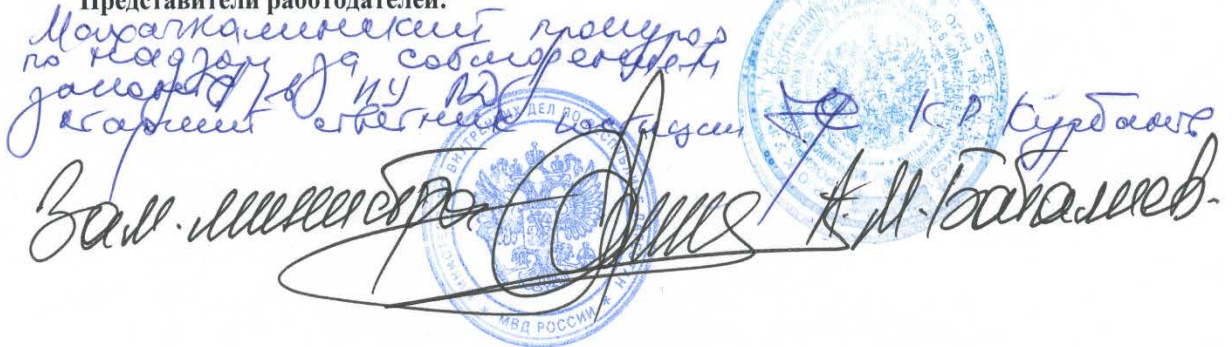 Представители работодателей:
Махачкалинский прокурор
по надзору за соблюдением
законов в ИУ РД
старший советник юстиции К.Р. Курбанов
Зам. министра А.М. Баталиев.
ВНУТРЕННИХ ДЕЛ ПО РЕСПУБЛИКЕ
МВД РОССИИ